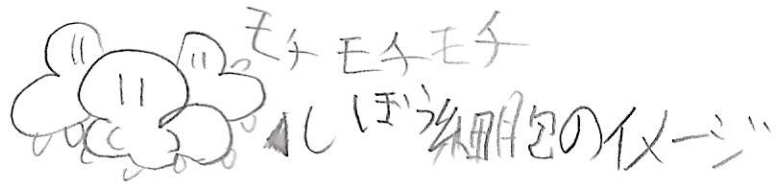 モチモチモチ
▲しぼう細胞のイメージ